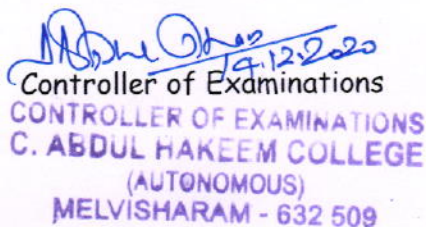 14.12.2020
Controller of Examinations
CONTROLLER OF EXAMINATIONS
C. ABDUL HAKEEM COLLEGE
(AUTONOMOUS)
MELVISHARAM - 632 509